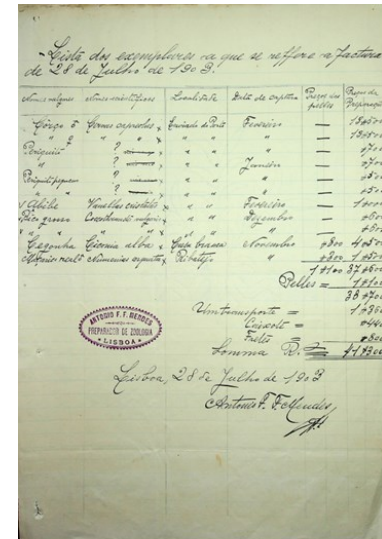 Lista dos exemplares a que se reffere a factura
de 28 de Julho de 1903.
Nomes vulgares Nomes scientificos Localidade Data da captura Preços das pelles Preços de Preparação
Corço ♂ Cervus capreolus Enviado do Porto Fevereiro —
" ♀ " " " " " —
Periquito ? " " " —
" ? " " Junho —
Periquito pequeno ? " " " —
" " ? " " " —
Abibe Vanellus cristatus " " Fevereiro — 1$000
Bico grosso " " Dezembro —
" " " " " " " —
Cegonha Ciconia alba Casa branca Novembro $800 4$500
Maçarico real Numenius arquata Ribatejo " $300 1$500
1$100 37$600
Pelles = 1$100
38$700
Um transporte =
Caixote =
Frete =
Somma R. 41$300
ANTONIO F. F. MENDES
PREPARADOR DE ZOOLOGIA
LISBOA
Lisboa, 28 de Julho de 1903
Antonio F. F. Mendes